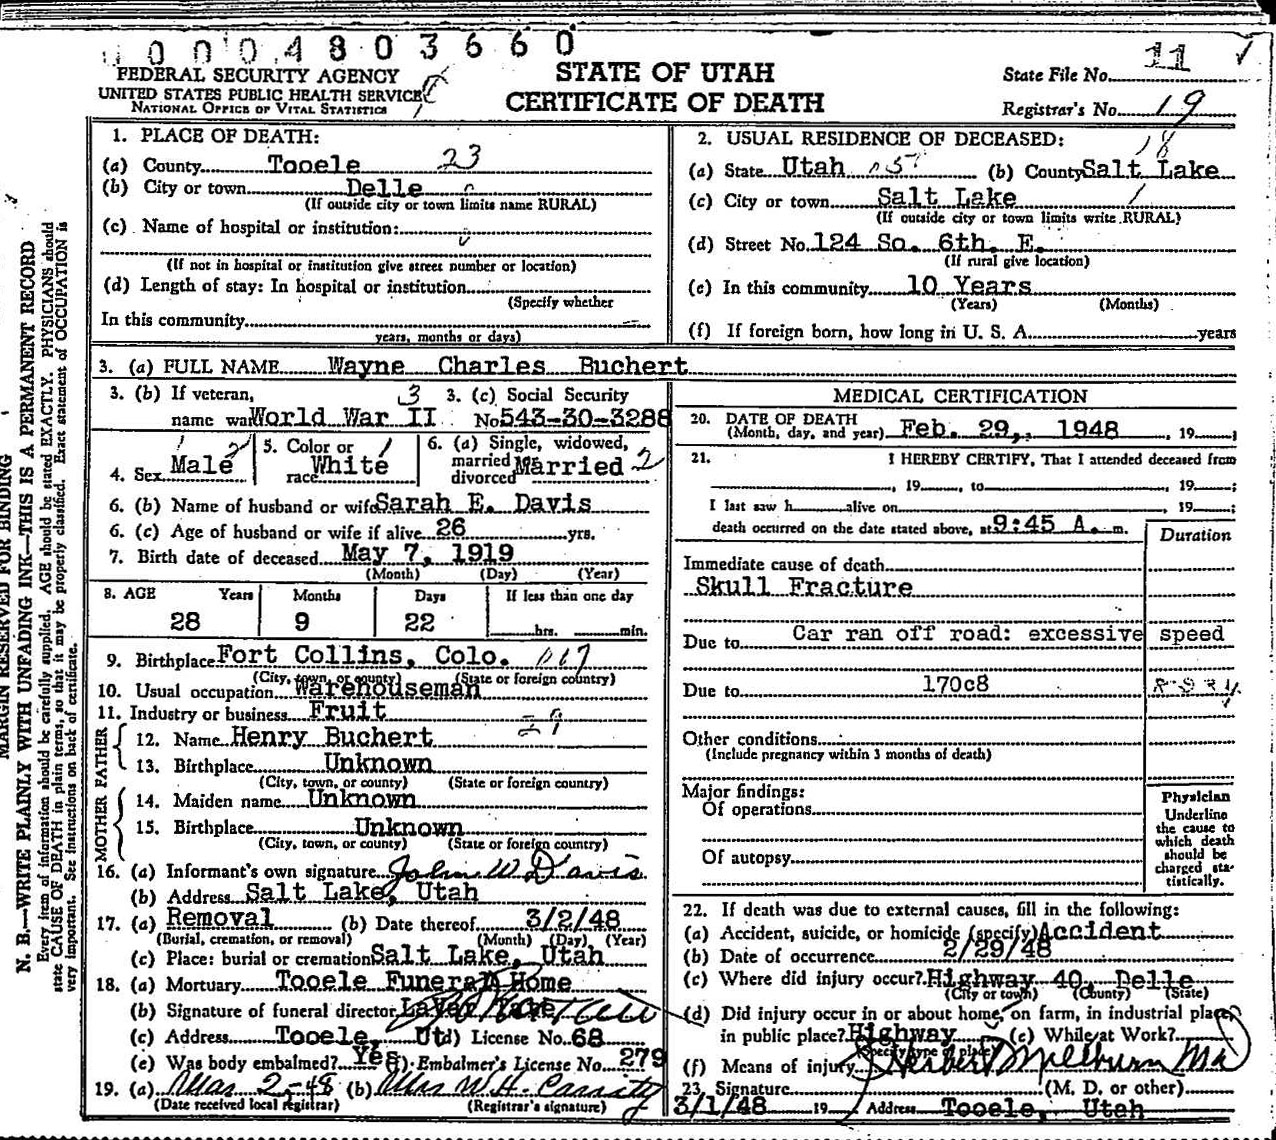 0004803660
FEDERAL SECURITY AGENCY
UNITED STATES PUBLIC HEALTH SERVICE
NATIONAL OFFICE OF VITAL STATISTICS
STATE OF UTAH
CERTIFICATE OF DEATH
State File No. 11
Registrar's No. 19
1. PLACE OF DEATH:
(a) County Tooele 23
(b) City or town Delle
(If outside city or town limits name RURAL)
(c) Name of hospital or institution:
(If not in hospital or institution give street number or location)
(d) Length of stay: In hospital or institution
(Specify whether
In this community
years, months or days)
2. USUAL RESIDENCE OF DECEASED:
18
(a) State Utah (b) County Salt Lake
(c) City or town Salt Lake
(If outside city or town limits write RURAL)
(d) Street No. 124 So. 6th. E.
(If rural give location)
(e) In this community 10 Years
(Years) (Months)
(f) If foreign born, how long in U. S. A. years
3. (a) FULL NAME Wayne Charles Buchert
3. (b) If veteran, 3 3. (c) Social Security
name war World War II No. 543-30-3288
4. Sex Male 5. Color or race White 6. (a) Single, widowed, married or divorced Married 2
6. (b) Name of husband or wife Sarah E. Davis
6. (c) Age of husband or wife if alive 26 yrs.
7. Birth date of deceased May 7, 1919
(Month) (Day) (Year)
8. AGE Years Months Days If less than one day
28 9 22 hrs. min.
9. Birthplace Fort Collins, Colo.
(City, town, or county) (State or foreign country)
10. Usual occupation Warehouseman
11. Industry or business Fruit
FATHER
12. Name Henry Buchert
13. Birthplace Unknown
(City, town, or county) (State or foreign country)
MOTHER
14. Maiden name Unknown
15. Birthplace Unknown
(City, town, or county) (State or foreign country)
16. (a) Informant's own signature John W Davis
(b) Address Salt Lake, Utah
17. (a) Removal (b) Date thereof 3/2/48
(Burial, cremation, or removal) (Month) (Day) (Year)
(c) Place: burial or cremation Salt Lake, Utah
18. (a) Mortuary Tooele Funeral Home
(b) Signature of funeral director
(c) Address Tooele, Ut (d) License No. 68
(e) Was body embalmed? Yes (f) Embalmer's License No. 279
19. (a) Mar 2-48 (b) Mrs W.H.
(Date received local registrar) (Registrar's signature)
MEDICAL CERTIFICATION
20. DATE OF DEATH
(Month, day, and year) Feb. 29, 1948, 19 ;
21. I HEREBY CERTIFY, That I attended deceased from
, 19 , to , 19 ;
I last saw h alive on , 19 ;
death occurred on the date stated above, at 9:45 A. m.
Duration
Immediate cause of death
Skull Fracture
Due to Car ran off road: excessive speed
Due to 170c8
Other conditions
(Include pregnancy within 3 months of death)
Major findings:
Of operations
Of autopsy
Physician
Underline
the cause to
which death
should be
charged sta-
tistically.
22. If death was due to external causes, fill in the following:
(a) Accident, suicide, or homicide (specify) Accident
(b) Date of occurrence 2/29/48
(c) Where did injury occur? Highway 40, Delle
(City or town) (County) (State)
(d) Did injury occur in or about home, on farm, in industrial place,
in public place? Highway (e) While at Work?
(Specify type of place)
(f) Means of injury
23. Signature Herbert D Milburn Md (M. D. or other)
3/1/48 19 Address Tooele, Utah
MARGIN RESERVED FOR BINDING
N. B.—WRITE PLAINLY WITH UNFADING INK—THIS IS A PERMANENT RECORD
Every item of information should be carefully supplied. AGE should be stated EXACTLY. PHYSICIANS should
state CAUSE OF DEATH in plain terms, so that it may be properly classified. Exact statement of OCCUPATION is
very important. See instructions on back of certificate.